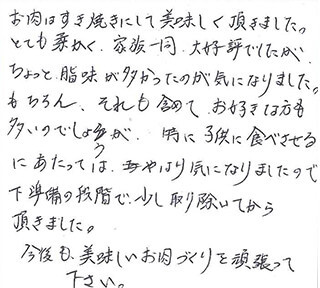 お肉はすき焼きにして美味しく頂きました。
とても柔かく、家族一同、大好評でしたが、
ちょっと脂味が多かったのが気になりました。
もちろん、それも含めてお好きな方も
多いのでしょうが、特に子供に食べさせる
にあたっては、やはり気になりましたので
下準備の段階で、少し取り除いてから
頂きました。
今後も、美味しいお肉づくりを頑張って
下さい。